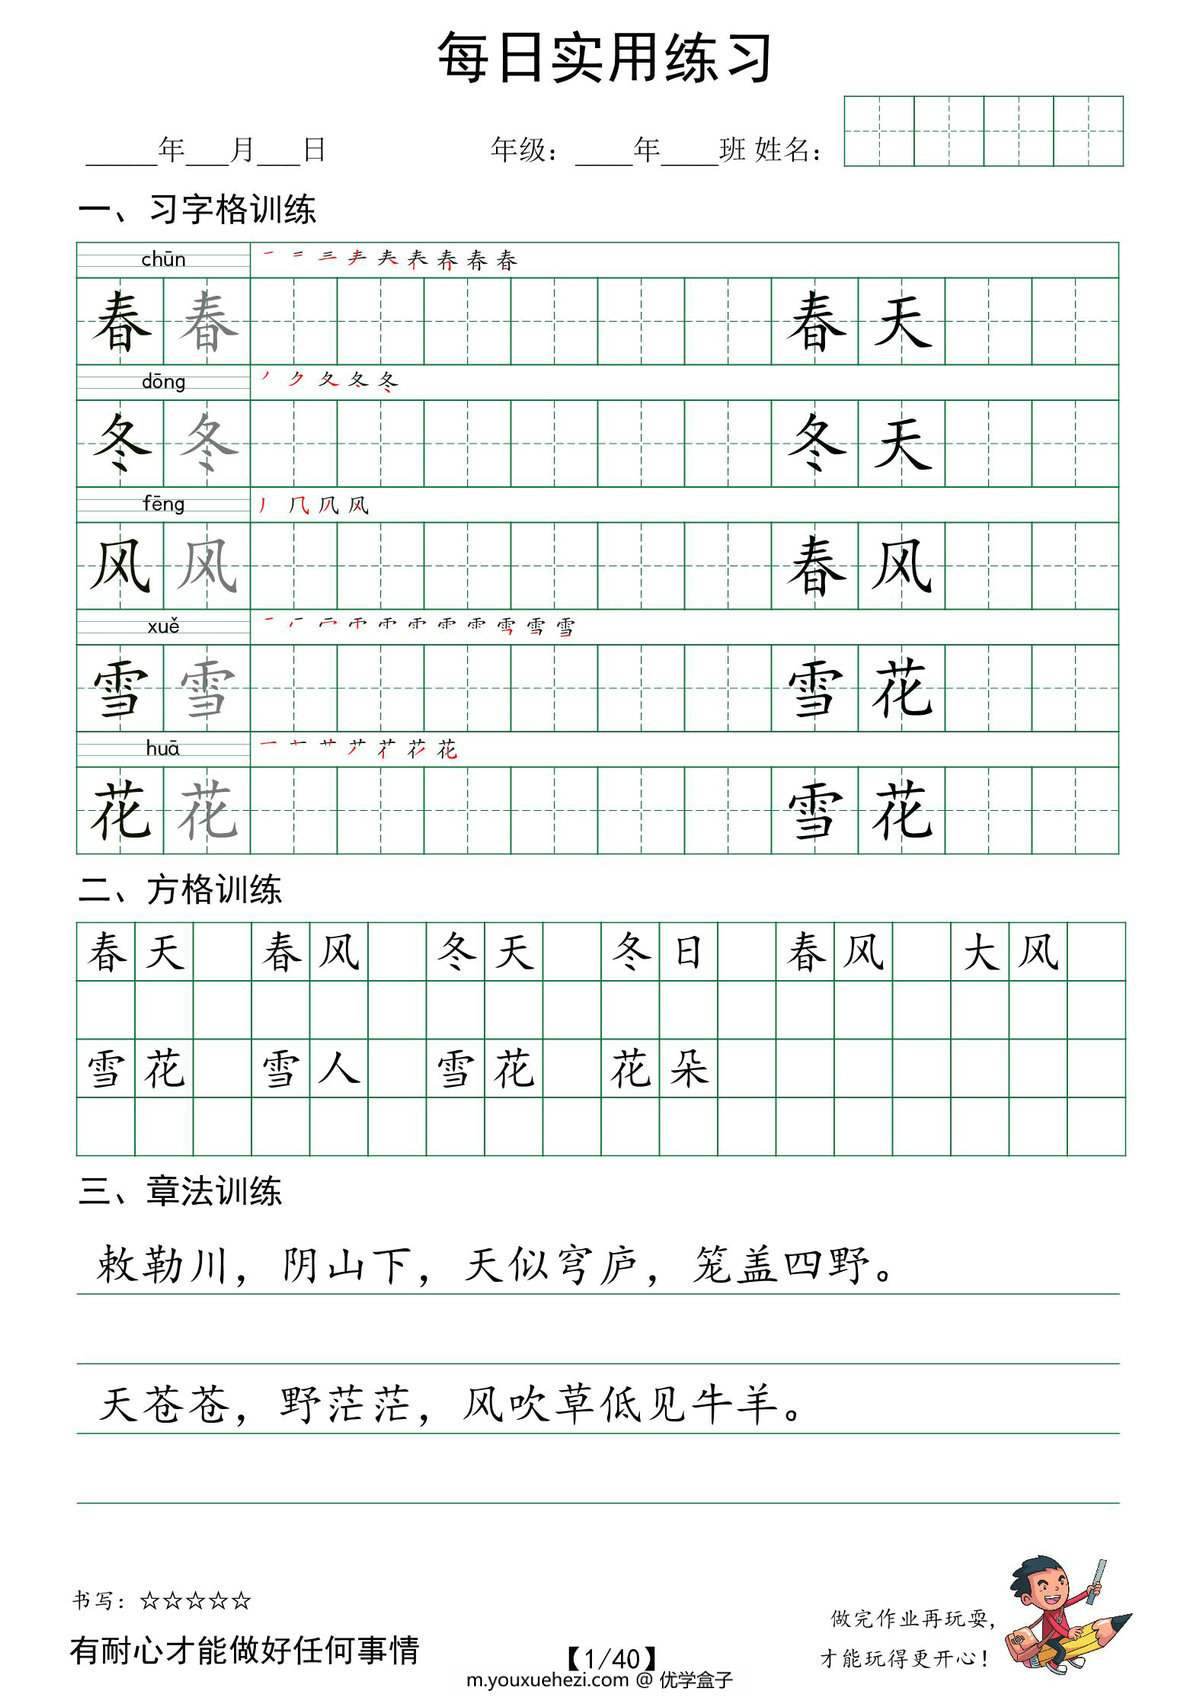 每日实用练习
_____年___月___日 年级：____年____班 姓名：
一、习字格训练
chūn
春 春 春 天
dōng
冬 冬 冬 天
fēng
风 风 春 风
xuě
雪 雪 雪 花
huā
花 花 雪 花
二、方格训练
春 天 春 风 冬 天 冬 日 春 风 大 风
雪 花 雪 人 雪 花 花 朵
三、章法训练
敕勒川，阴山下，天似穹庐，笼盖四野。
天苍苍，野茫茫，风吹草低见牛羊。
书写：☆☆☆☆☆
做完作业再玩耍，
才能玩得更开心！
有耐心才能做好任何事情
【1/40】
m.youxuehezi.com @ 优学盒子